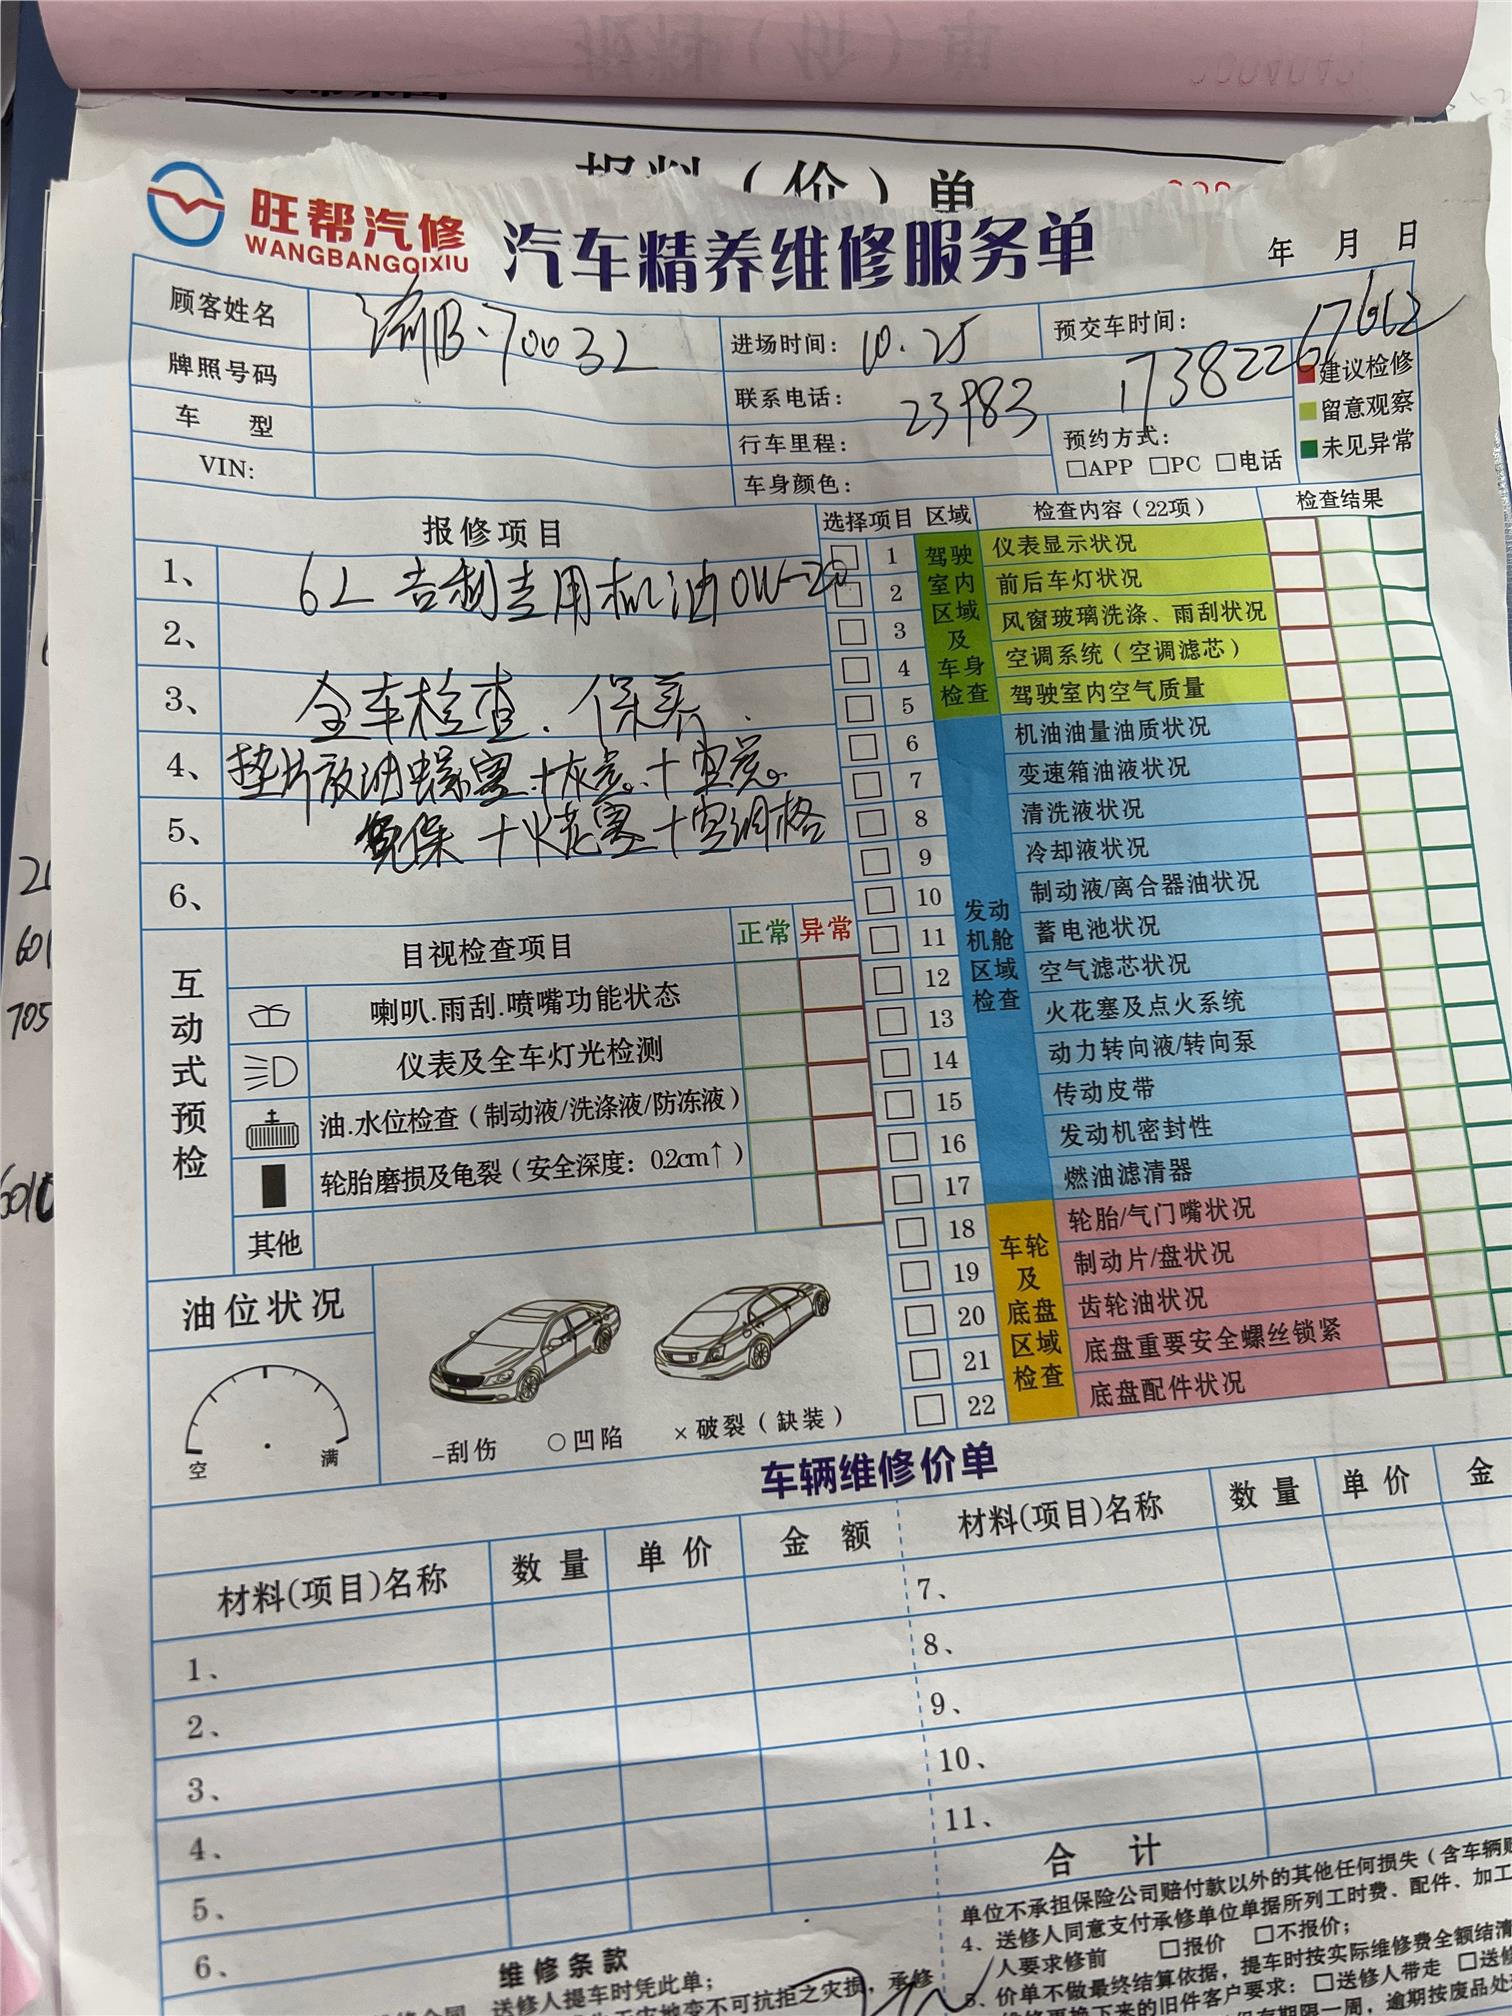 (价)单
旺帮汽修
WANGBANGQIXIU
汽车精养维修服务单
年 月 日
顾客姓名
B·70032
进场时间: 10.25
预交车时间:
牌照号码
联系电话: 17382267662
建议检修
车 型
行车里程: 23983
预约方式:
留意观察
□APP □PC □电话
未见异常
VIN:
车身颜色:
报修项目
选择项目 区域 检查内容(22项) 检查结果
1、 6L 吉利专用机油0W-20
2、
3、 全车检查. 保养.
4、 垫片放油螺塞
5、 保 +火花塞+空调格
6、
□ 1 驾驶室内区域及车身检查 仪表显示状况
□ 2 前后车灯状况
□ 3 风窗玻璃洗涤、雨刮状况
□ 4 空调系统(空调滤芯)
□ 5 驾驶室内空气质量
□ 6 发动机舱区域检查 机油油量油质状况
□ 7 变速箱油液状况
□ 8 清洗液状况
□ 9 冷却液状况
□ 10 制动液/离合器油状况
□ 11 蓄电池状况
□ 12 空气滤芯状况
□ 13 火花塞及点火系统
□ 14 动力转向液/转向泵
□ 15 传动皮带
□ 16 发动机密封性
□ 17 燃油滤清器
□ 18 车轮及底盘区域检查 轮胎/气门嘴状况
□ 19 制动片/盘状况
□ 20 齿轮油状况
□ 21 底盘重要安全螺丝锁紧
□ 22 底盘配件状况
互动式预检
目视检查项目 正常 异常
喇叭.雨刮.喷嘴功能状态
仪表及全车灯光检测
油.水位检查(制动液/洗涤液/防冻液)
轮胎磨损及龟裂(安全深度:0.2cm↑)
其他
油位状况
空 满
-刮伤 ○凹陷 ×破裂(缺装)
车辆维修价单
材料(项目)名称 数量 单价 金额 材料(项目)名称 数量 单价 金
1、
2、
3、
4、
5、
6、
7、
8、
9、
10、
11、
合 计
维修条款
送修人提车时凭此单;
不可抗拒之灾损,承修
单位不承担保险公司赔付款以外的其他任何损失(含车辆
4、送修人同意支付承修单位单据所列工时费、配件、加工
人要求修前 □报价 □不报价;
5、价单不做最终结算依据,提车时按实际维修费全额结清
维修更换下来的旧件客户要求:□送修人带走 □送修
期限一周,逾期按废品处
601
705
6010